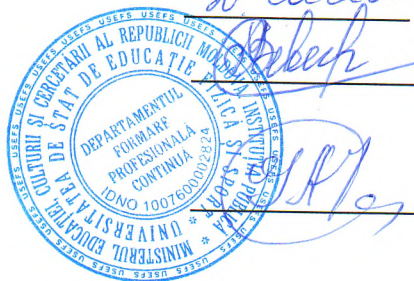 USEFS USEFS USEFS USEFS USEFS USEFS USEFS USEFS
MINISTERUL EDUCAȚIEI, CULTURII ȘI CERCETĂRII AL REPUBLICII MOLDOVA INSTITUȚIA PUBLICĂ *
UNIVERSITATEA DE STAT DE EDUCAȚIE FIZICĂ ȘI SPORT *
DEPARTAMENTUL
FORMARE
PROFESIONALĂ
CONTINUĂ
IDNO 1007600002834